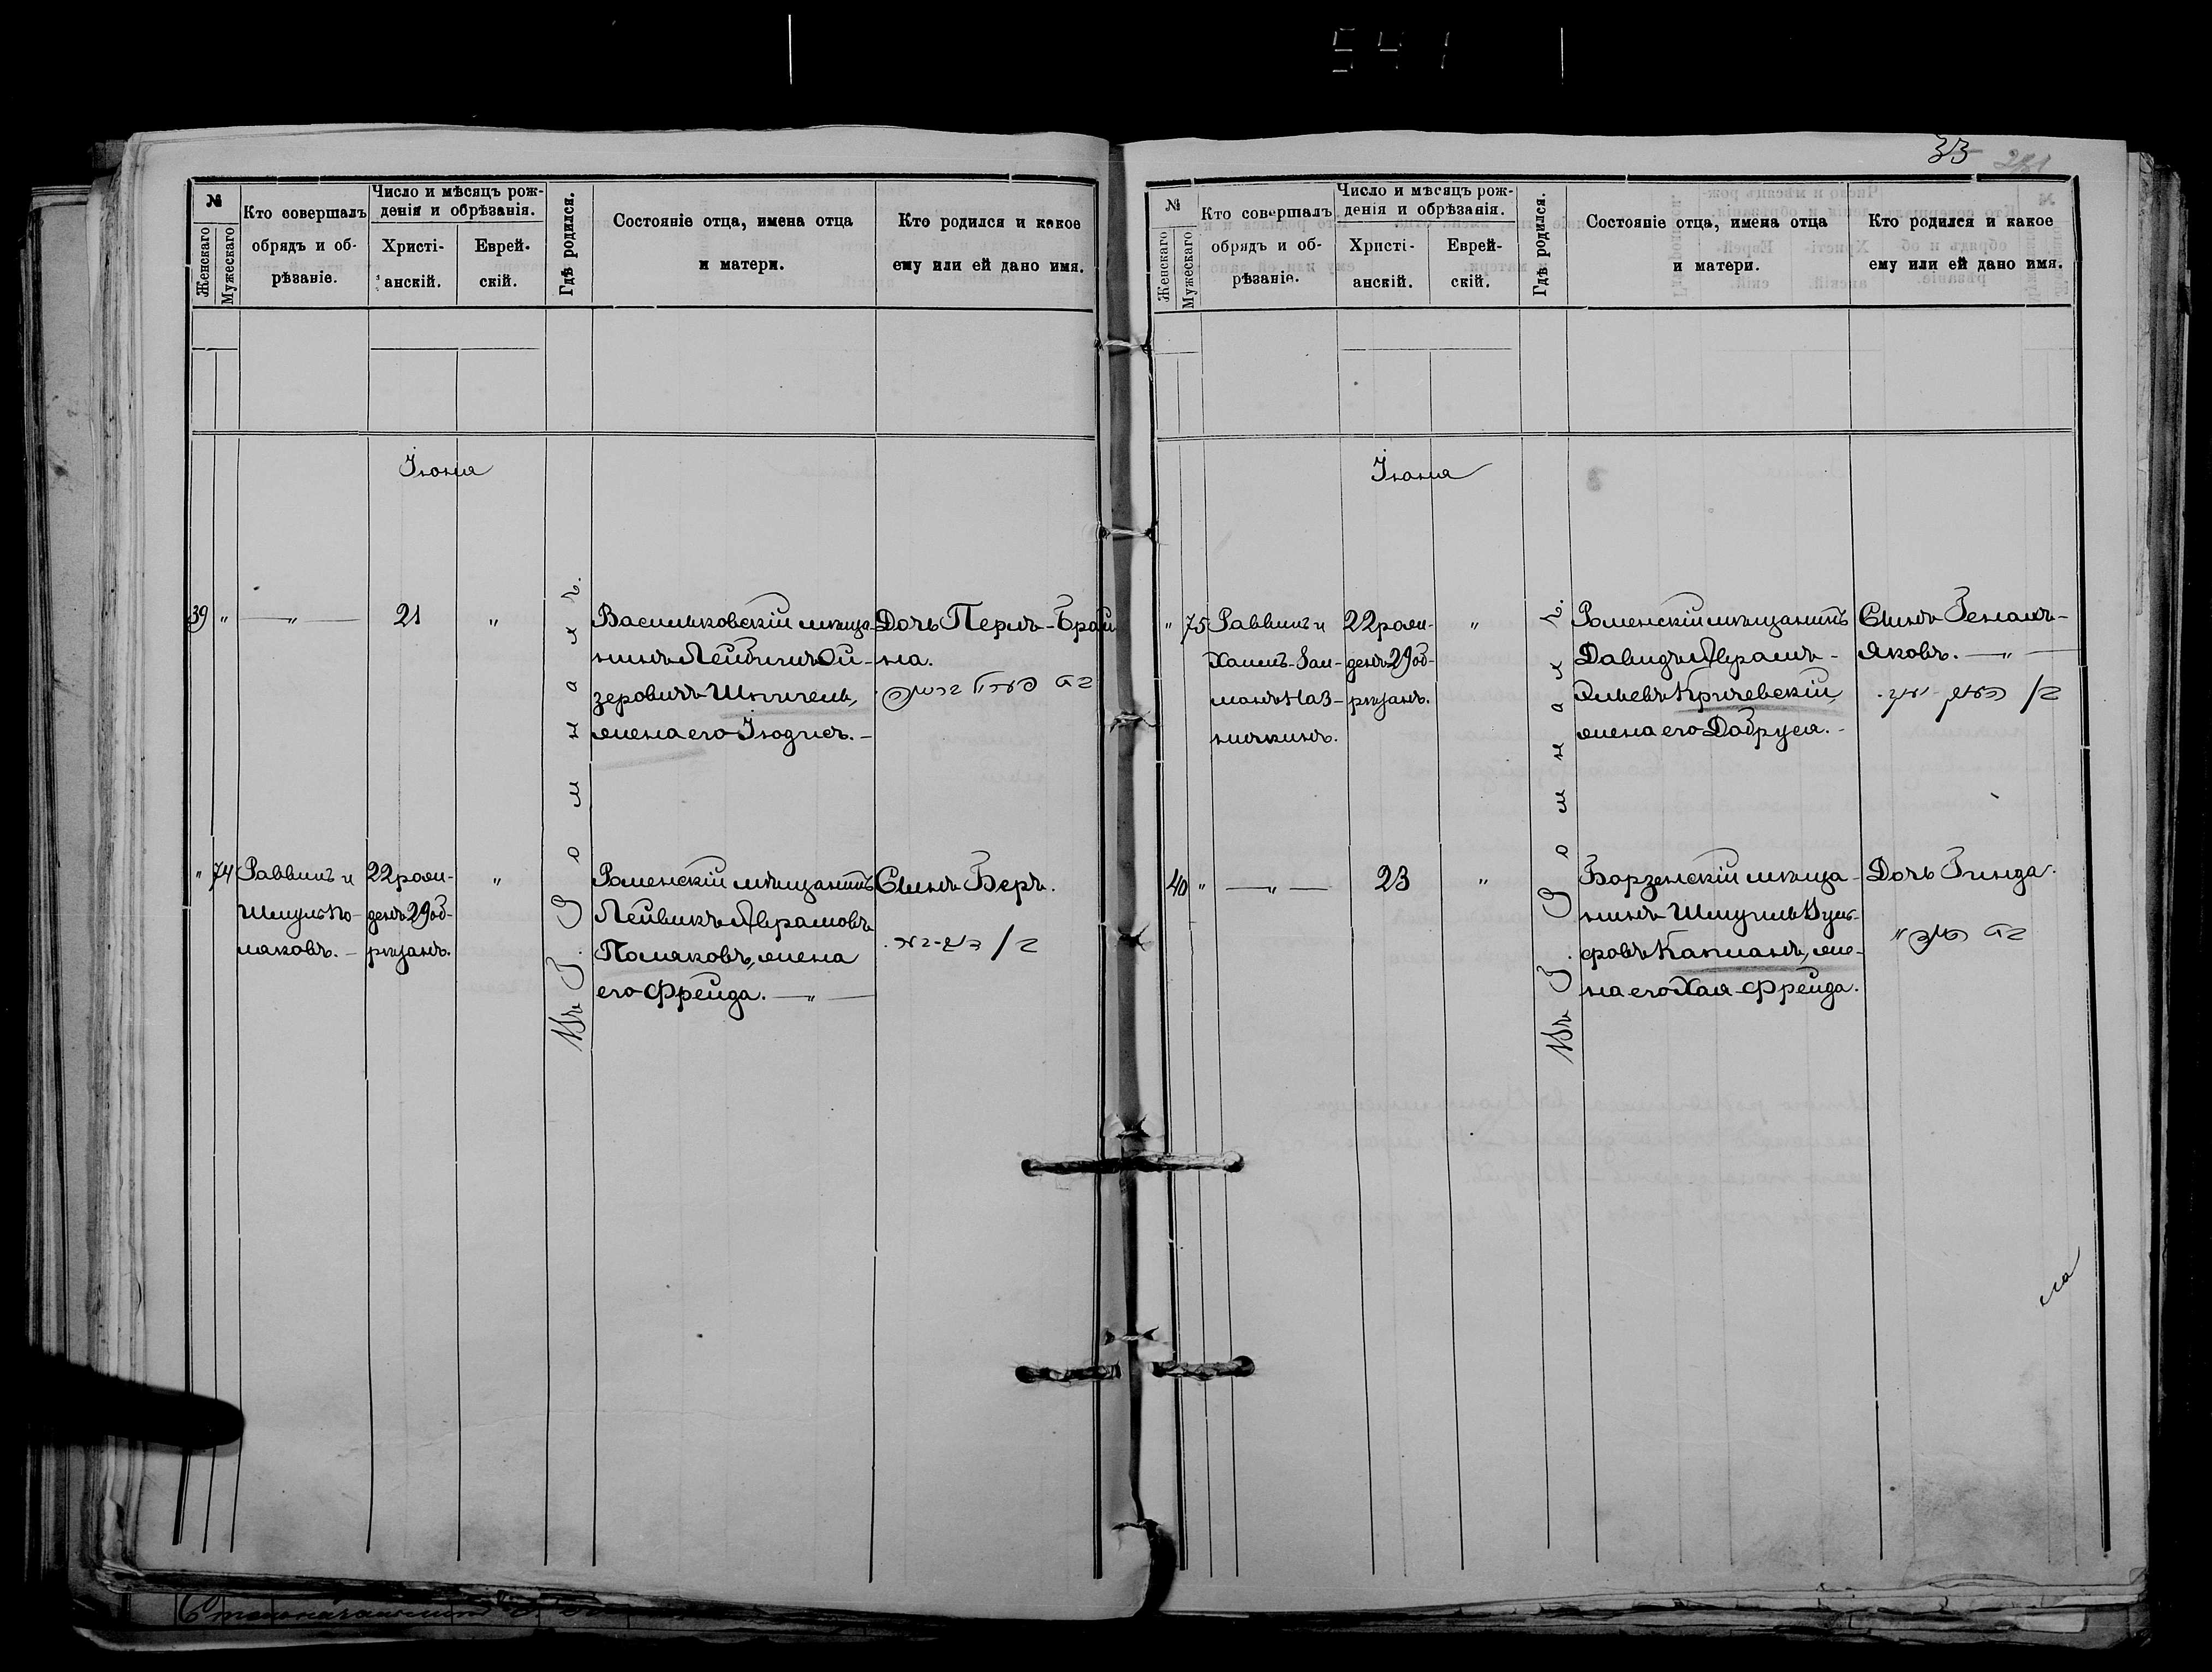 541
33
№
Женскаго
Мужескаго
Кто совершалъ
обрядъ и об-
рѣзаніе.
Число и мѣсяцъ рож-
денія и обрѣзанія.
Христі-
анскій.
Еврей-
скій.
Гдѣ родился.
Состояніе отца, имена отца
и матери.
Кто родился и какое
ему или ей дано имя.
Іюня
39 " — " — 21 "
Васильковскій мѣща-
нинъ Лейбичъ Ой-
зеровичъ Шпигель,
жена его Іюдисъ. -
Дочь Перлъ-Брай
на.
" 74
Раввинъ и
Шмуль По-
ляковъ. -
22 рож-
денъ 29 об-
рѣзанъ.
"
Роменскій мѣщанинъ
Лейвикъ Аврамовъ
Поляковъ, жена
его Фрейда. — " —
Сынъ Беръ.
Въ Г. Ромнахъ.
№
Женскаго
Мужескаго
Кто совершалъ
обрядъ и об-
рѣзаніе.
Число и мѣсяцъ рож-
денія и обрѣзанія.
Христі-
анскій.
Еврей-
скій.
Гдѣ родился.
Состояніе отца, имена отца
и матери.
Кто родился и какое
ему или ей дано имя.
Іюня
" 75
Раввинъ и
Хаимъ-Зал-
манъ Наз-
ничкинъ.
22 рож-
денъ 29 об-
рѣзанъ.
"
Роменскій мѣщанинъ
Давидъ Аврамъ-
Эльевъ Кричевскій,
жена его Добруся. -
Сынъ Генахъ-
Яковъ. — " —
40 " — " — 23 "
Борзенскій мѣща-
нинъ Шмуиль Вуль-
фовъ Капланъ, же-
на его Хая-Фрейда.
Дочь Гинда.
Въ Г. Ромнахъ.